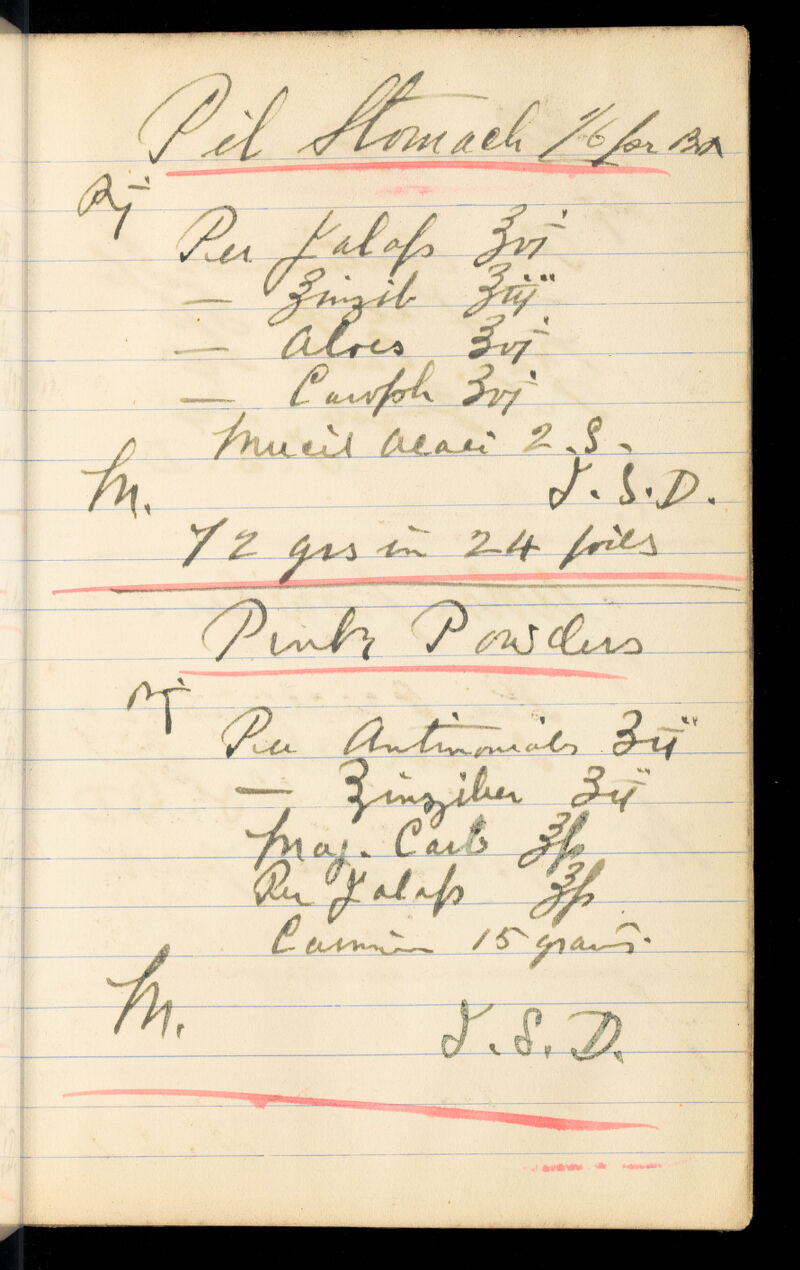 Pil Stomach 1/6 per Box
Rj
Pulv Jalap ʒvj
— Zinzib ʒiij
— Aloes ʒvj
— Caroph ʒvj
Mucil Acaci 2.S.
M. J.S.D.
72 grs in 24 pills
Pink Powders
Rj
Pulv Antimonialis ʒij
— Zinziber ʒij
Mag. Carb ℥ß
Pulv Jalap ℥ß
Carmine 15 grains.
M.
J.S.D.